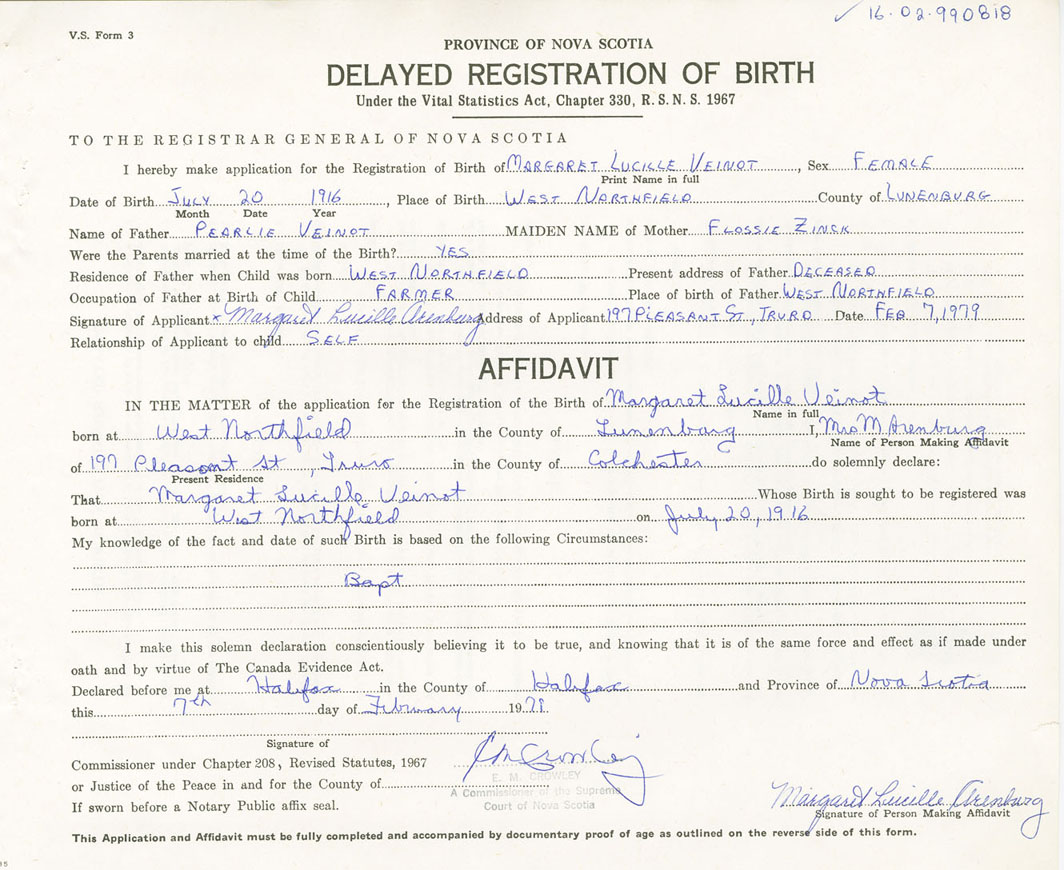 ✓ 16.02.990818
V.S. Form 3
PROVINCE OF NOVA SCOTIA
DELAYED REGISTRATION OF BIRTH
Under the Vital Statistics Act, Chapter 330, R.S.N.S. 1967
TO THE REGISTRAR GENERAL OF NOVA SCOTIA
I hereby make application for the Registration of Birth of MARGARET LUCILLE VEINOT, Sex FEMALE
Print Name in full
Date of Birth JULY 20 1916, Place of Birth WEST NORTHFIELD County of LUNENBURG
Month Date Year
Name of Father PEARLIE VEINOT MAIDEN NAME of Mother FLOSSIE ZINCK
Were the Parents married at the time of the Birth? YES
Residence of Father when Child was born WEST NORTHFIELD Present address of Father DECEASED
Occupation of Father at Birth of Child FARMER Place of birth of Father WEST NORTHFIELD
Signature of Applicant x Margaret Lucille Arenburg Address of Applicant 197 PLEASANT ST, TRURO Date FEB 7, 1979
Relationship of Applicant to child SELF
AFFIDAVIT
IN THE MATTER of the application for the Registration of the Birth of Margaret Lucille Veinot
Name in full
born at West Northfield in the County of Lunenburg I, Mrs M Arenburg
Name of Person Making Affidavit
of 197 Pleasant St, Truro in the County of Colchester do solemnly declare:
Present Residence
That Margaret Lucille Veinot Whose Birth is sought to be registered was
born at West Northfield on July 20, 1916
My knowledge of the fact and date of such Birth is based on the following Circumstances:
Bapt
I make this solemn declaration conscientiously believing it to be true, and knowing that it is of the same force and effect as if made under
oath and by virtue of The Canada Evidence Act.
Declared before me at Halifax in the County of Halifax and Province of Nova Scotia
this 7th day of February 19
Signature of
Commissioner under Chapter 208, Revised Statutes, 1967
or Justice of the Peace in and for the County of
If sworn before a Notary Public affix seal.
E M Crowley
E. M. CROWLEY
A Commissioner of the Supreme
Court of Nova Scotia
Margaret Lucille Arenburg
Signature of Person Making Affidavit
This Application and Affidavit must be fully completed and accompanied by documentary proof of age as outlined on the reverse side of this form.